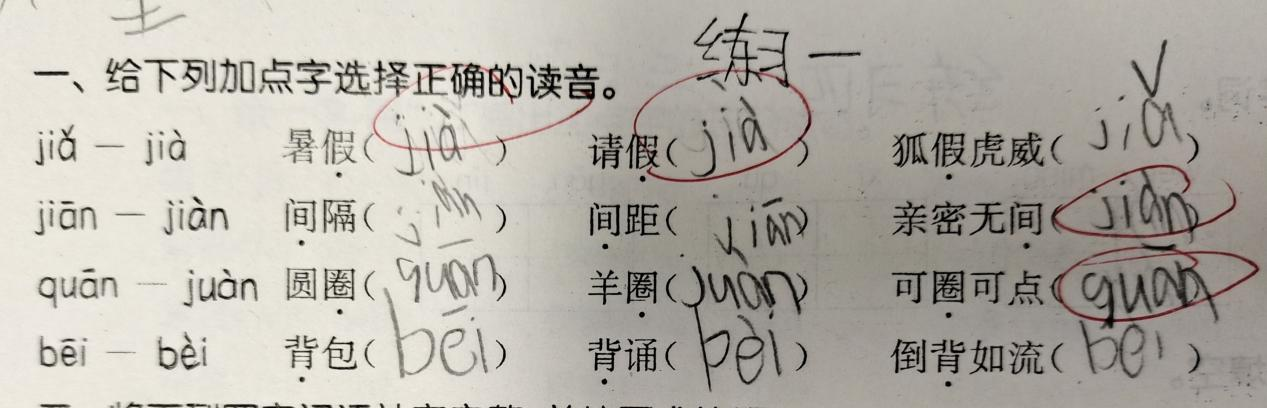 练习一
一、给下列加点字选择正确的读音。
jiǎ — jià 暑假( jià ) 请假( jià ) 狐假虎威( jiǎ )
jiān — jiàn 间隔( jiàn ) 间距( jiān ) 亲密无间( jiàn )
quān — juàn 圆圈( quān ) 羊圈( juàn ) 可圈可点( quān )
bēi — bèi 背包( bēi ) 背诵( bèi ) 倒背如流( bèi )